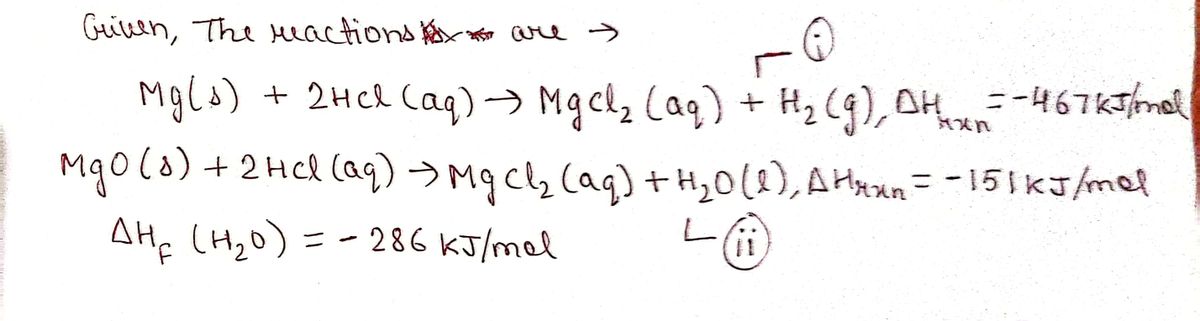 Given, The reactions are →
(i)
Mg(s) + 2HCl (aq) → MgCl₂ (aq) + H₂ (g), ΔHrxn = -467kJ/mol
MgO(s) + 2HCl (aq) → MgCl₂ (aq) + H₂O(l), ΔHrxn = -151kJ/mol
ΔHF (H₂O) = - 286 kJ/mol
(ii)